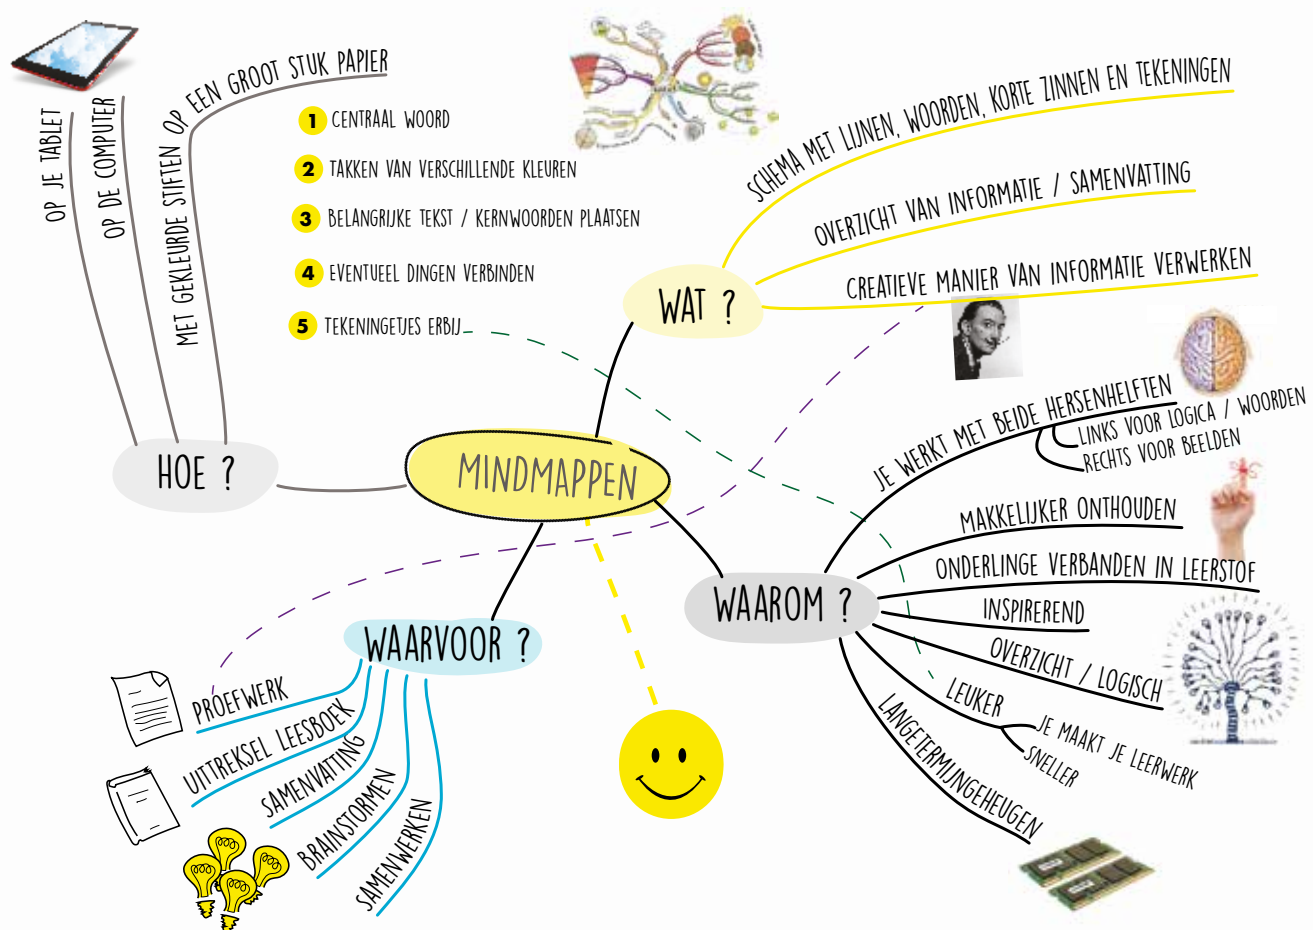 OP JE TABLET
OP DE COMPUTER
MET GEKLEURDE STIFTEN OP EEN GROOT STUK PAPIER
HOE ?
1 CENTRAAL WOORD
2 TAKKEN VAN VERSCHILLENDE KLEUREN
3 BELANGRIJKE TEKST / KERNWOORDEN PLAATSEN
4 EVENTUEEL DINGEN VERBINDEN
5 TEKENINGETJES ERBIJ
MINDMAPPEN
WAT ?
SCHEMA MET LIJNEN, WOORDEN, KORTE ZINNEN EN TEKENINGEN
OVERZICHT VAN INFORMATIE / SAMENVATTING
CREATIEVE MANIER VAN INFORMATIE VERWERKEN
WAAROM ?
JE WERKT MET BEIDE HERSENHELFTEN
LINKS VOOR LOGICA / WOORDEN
RECHTS VOOR BEELDEN
MAKKELIJKER ONTHOUDEN
ONDERLINGE VERBANDEN IN LEERSTOF
INSPIREREND
OVERZICHT / LOGISCH
LEUKER
JE MAAKT JE LEERWERK
SNELLER
LANGETERMIJNGEHEUGEN
WAARVOOR ?
PROEFWERK
UITTREKSEL LEESBOEK
SAMENVATTING
BRAINSTORMEN
SAMENWERKEN